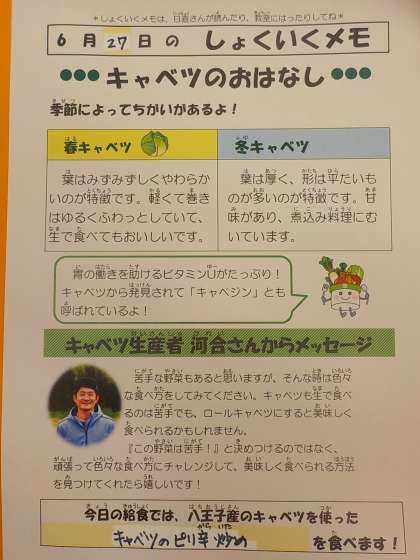 ＊しょくいくメモは、日直さんが読んだり、教室にはったりしてね＊
6月27日の しょくいくメモ
●●●キャベツのおはなし●●●
季節によってちがいがあるよ！
春キャベツ
葉はみずみずしくやわらか
いのが特徴です。軽くて巻き
はゆるくふわっとしていて、
生で食べてもおいしいです。
冬キャベツ
葉は厚く、形は平たいも
のが多いのが特徴です。甘
味があり、煮込み料理にむ
いています。
胃の働きを助けるビタミンUがたっぷり！
キャベツから発見されて「キャベジン」とも
呼ばれているよ！
キャベツ生産者 河合さんからメッセージ
苦手な野菜もあると思いますが、そんな時は色々
な食べ方をしてみてください。キャベツも生で食べ
るのは苦手でも、ロールキャベツにすると美味しく
食べられるかもしれません。
『この野菜は苦手！』と決めつけるのではなく、
頑張って色々な食べ方にチャレンジして、美味しく食べられる方法
を見つけてくれたら嬉しいです！
今日の給食では、八王子産のキャベツを使った
キャベツのピリ辛炒め を食べます！